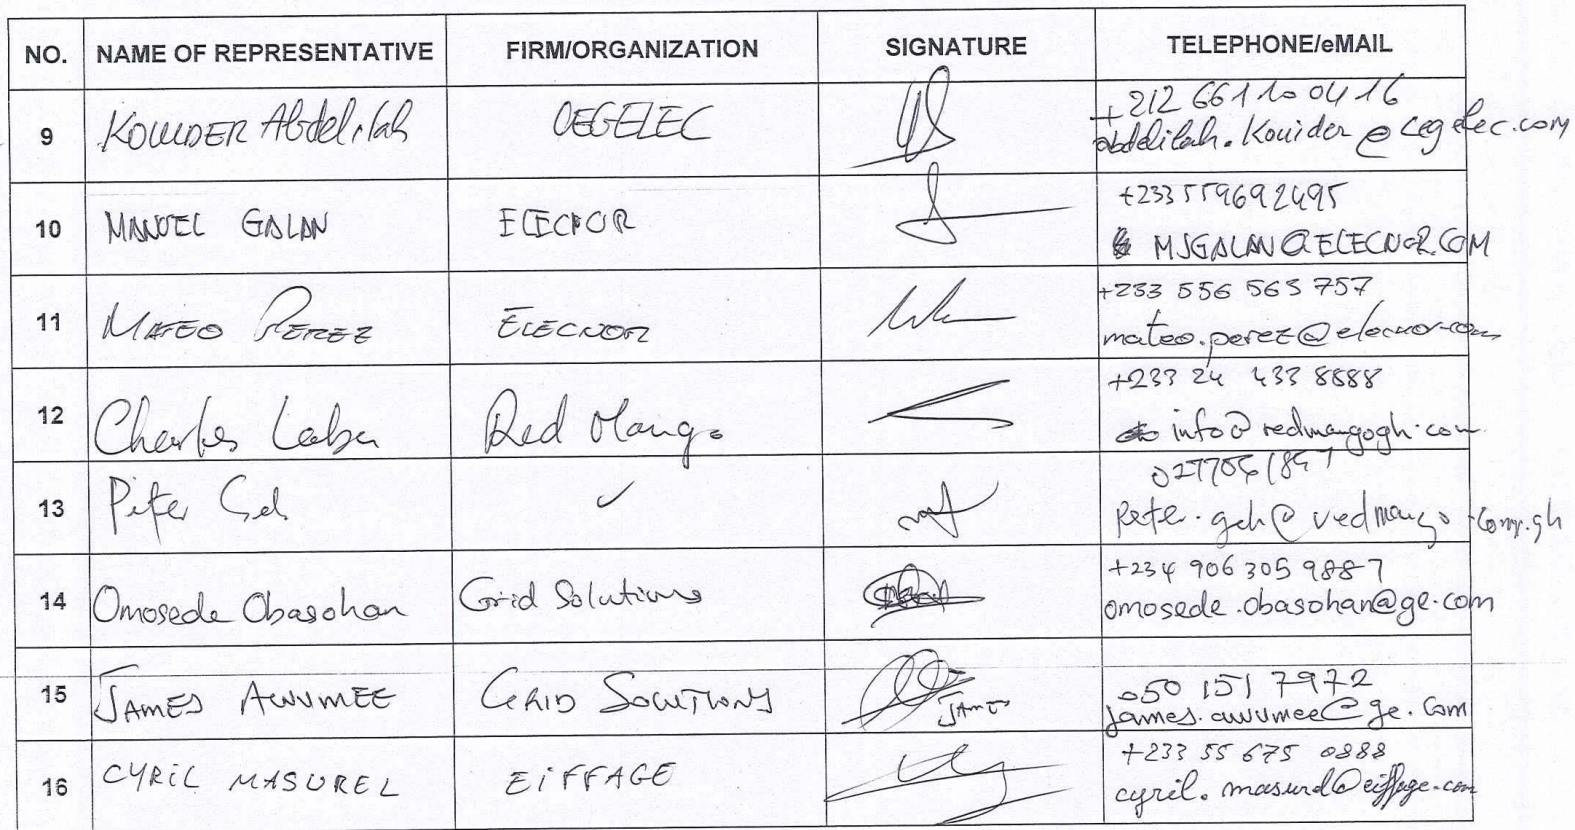 NO. NAME OF REPRESENTATIVE FIRM/ORGANIZATION SIGNATURE TELEPHONE/eMAIL
9 KOUIDER Abdelilah CEGELEC +212 661 10 04 16
abdelilah.Kouider@cegelec.com
10 MANUEL GALAN ELECNOR +233 559692495
MJGALAN@ELECNOR.COM
11 MATEO PEREZ ELECNOR +233 556 565 757
mateo.perez@elecnor.com
12 Charles Laba Red Mango +233 24 433 8888
info@redmangogh.com
13 Peter Geh ✓
Peter.geh@redmango.com.gh
14 Omosede Obasohan Grid Solutions +234 906 305 9887
omosede.obasohan@ge.com
15 JAMES AWUMEE GRID SOLUTIONS JAMES 050 151 7972
james.awumee@ge.com
16 CYRIL MASUREL EIFFAGE +233 55 675 0888
cyril.masurel@eiffage.com